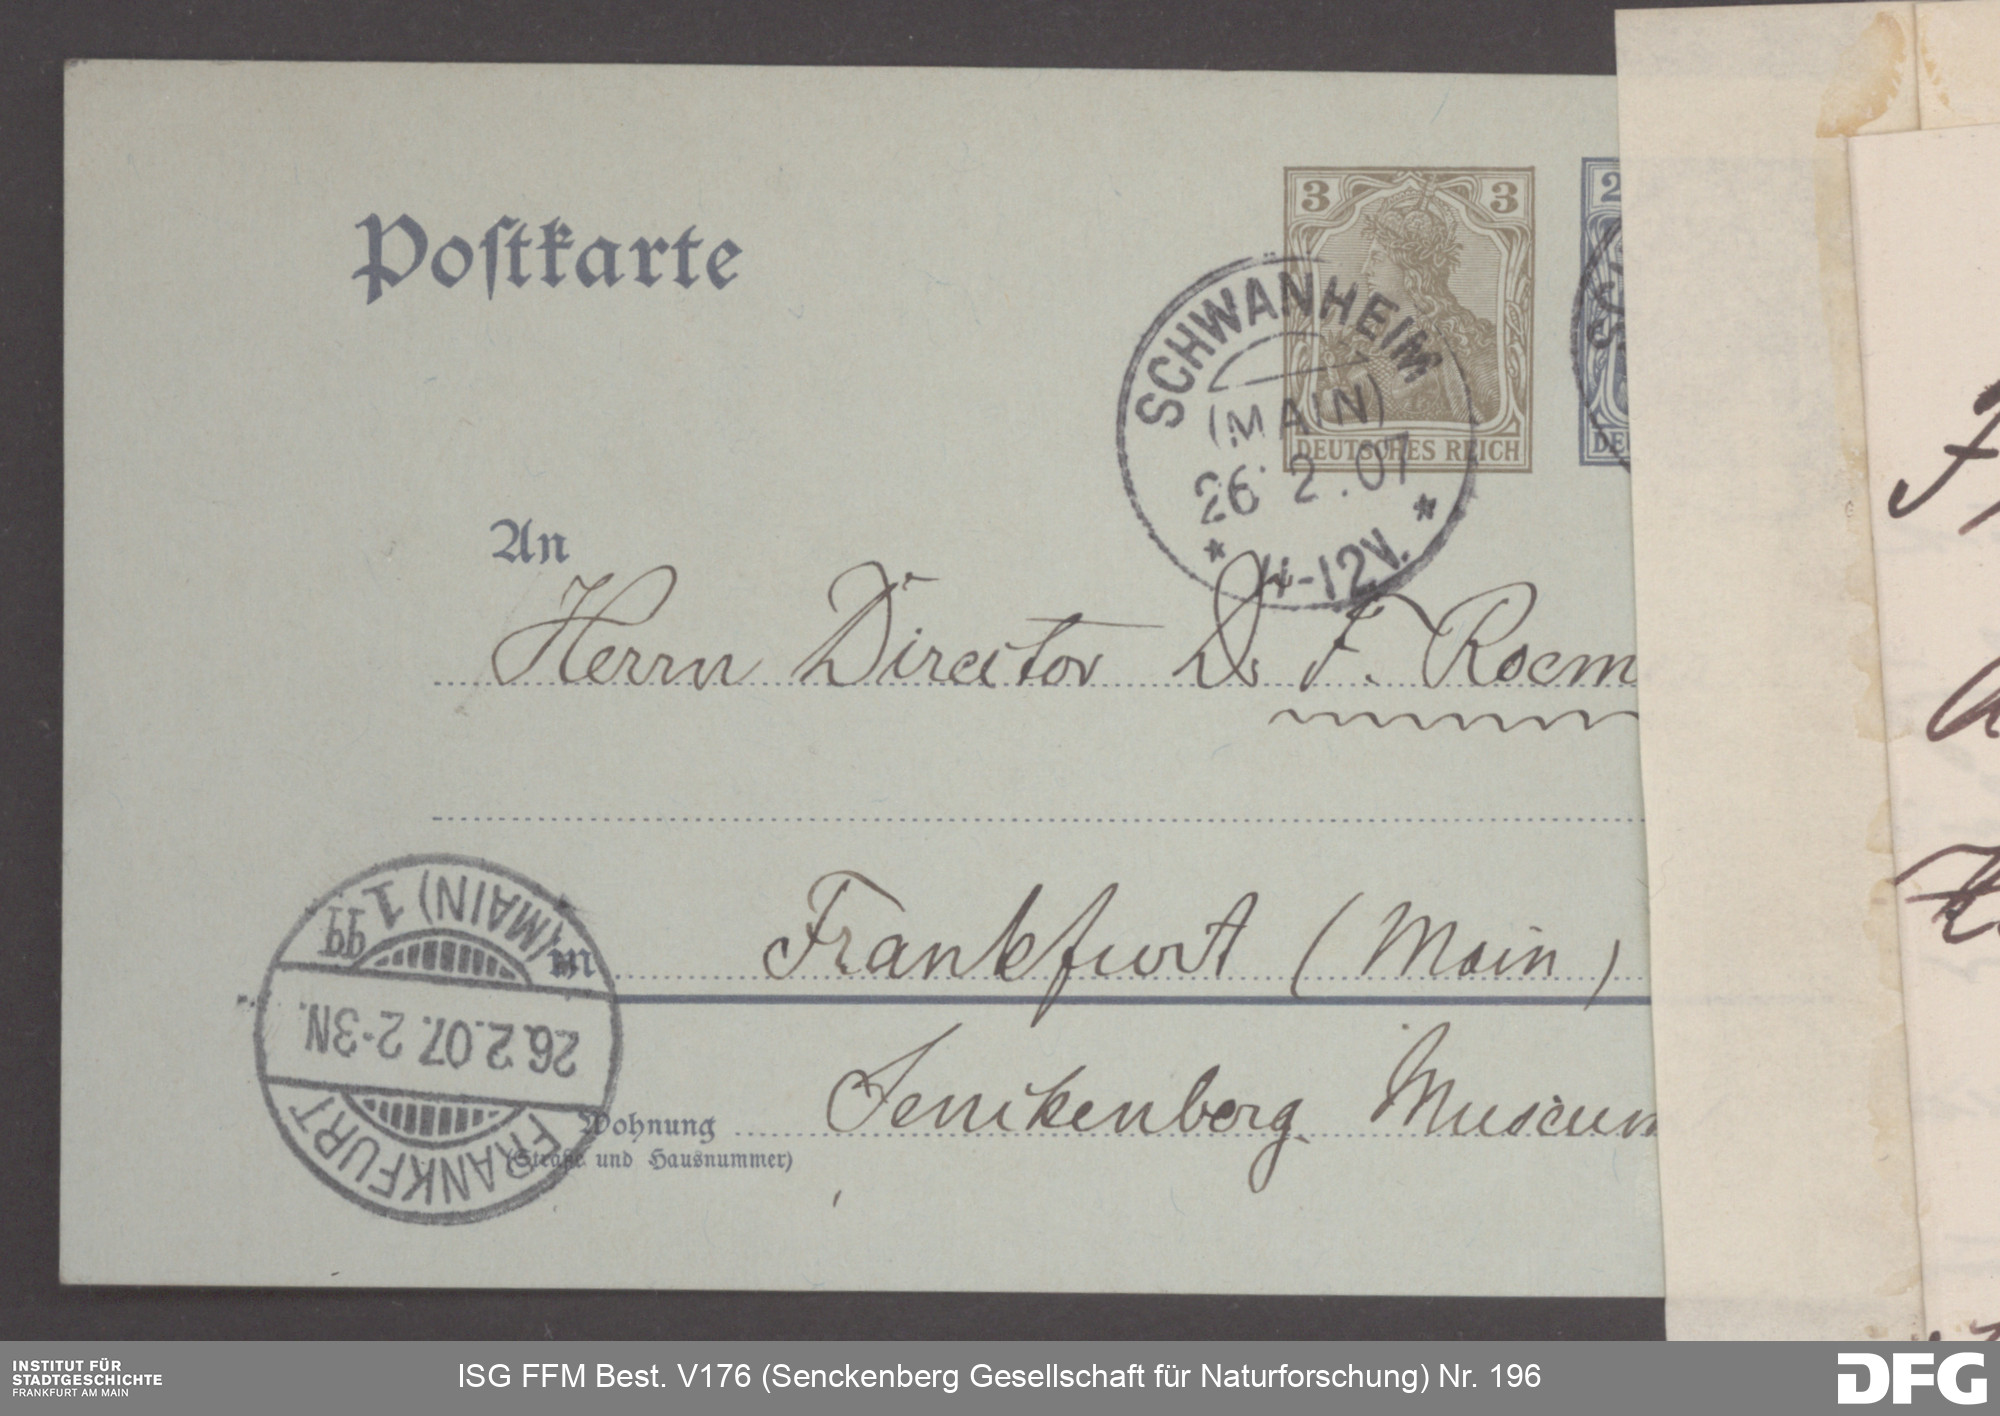 Postkarte
3 3
DEUTSCHES REICH
2
SCHWANHEIM
(MAIN)
26.2.07
11-12V.
An
Herrn Director Dr F. Roem
in Frankfurt (Main)
Senckenberg. Museum
Wohnung
(Straße und Hausnummer)
FRANKFURT
26.2.07. 2-3N.
(MAIN) 1. qq
INSTITUT FÜR
STADTGESCHICHTE
FRANKFURT AM MAIN
ISG FFM Best. V176 (Senckenberg Gesellschaft für Naturforschung) Nr. 196
DFG